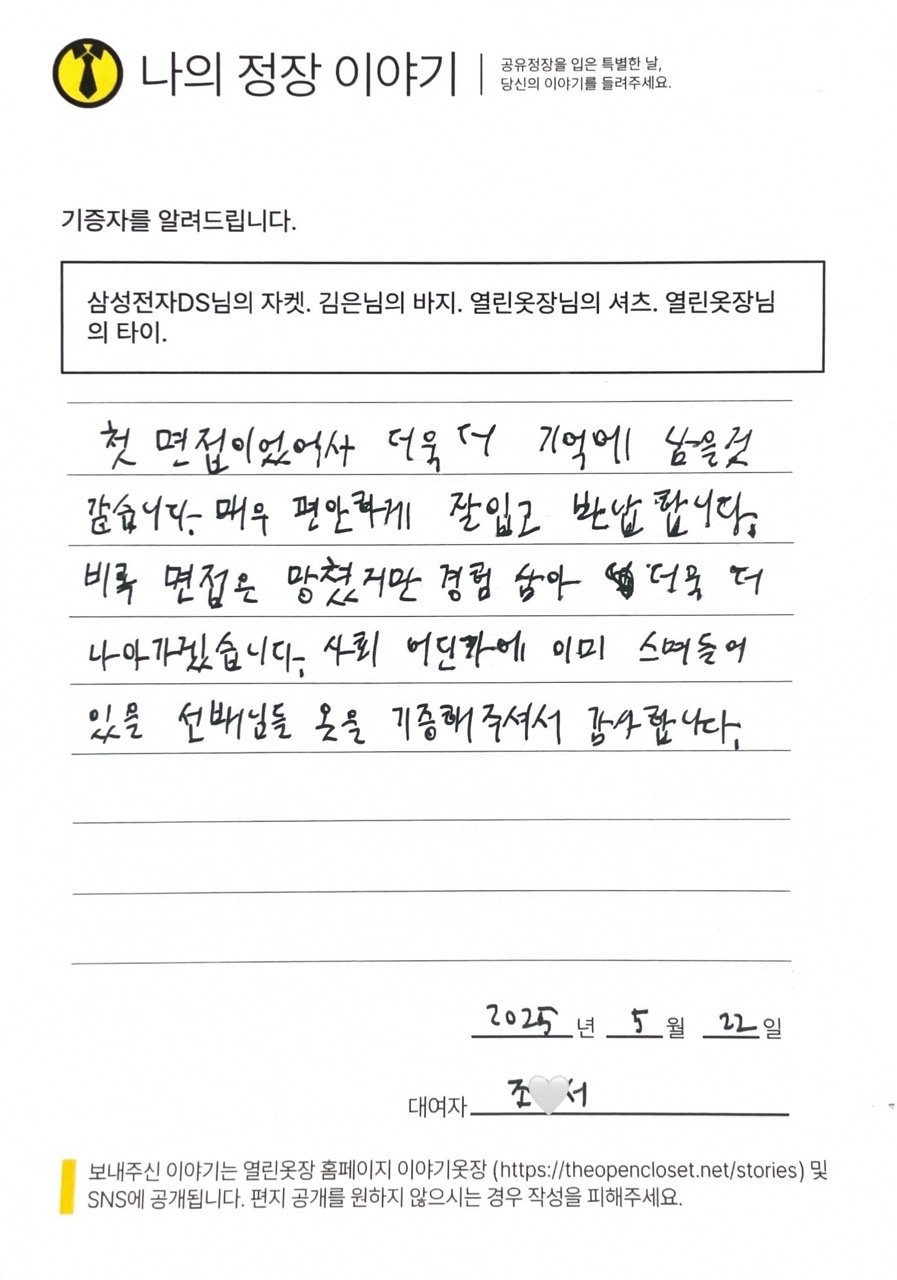 나의 정장 이야기
공유정장을 입은 특별한 날,
당신의 이야기를 들려주세요.
기증자를 알려드립니다.
삼성전자DS님의 자켓. 김은님의 바지. 열린옷장님의 셔츠. 열린옷장님
의 타이.
첫 면접이었어서 더욱 더 기억에 남을것
같습니다. 매우 편안하게 잘입고 반납합니다.
비록 면접은 망쳤지만 경험 삼아 더욱 더
나아가겠습니다. 사회 어딘가에 이미 스며들어
있을 선배님들 옷을 기증해주셔서 감사합니다.
2025 년 5 월 22 일
대여자 조🤍서
보내주신 이야기는 열린옷장 홈페이지 이야기옷장 (https://theopencloset.net/stories) 및
SNS에 공개됩니다. 편지 공개를 원하지 않으시는 경우 작성을 피해주세요.